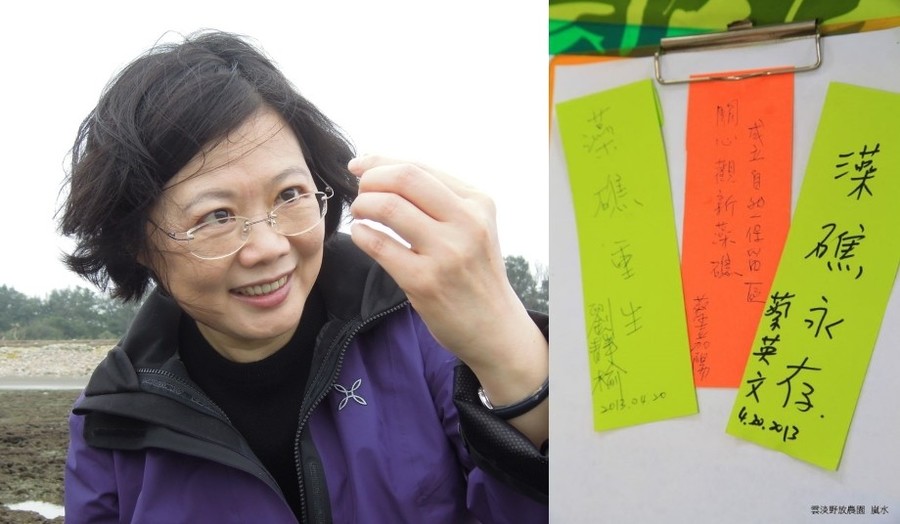 藻礁重生
劉靜榆
2013.04.20
關心觀新藻礁
成立自然保留區
蔡嘉陽
藻礁,永存.
蔡英文
4.20.2013
雲淡野放農園 嵐水